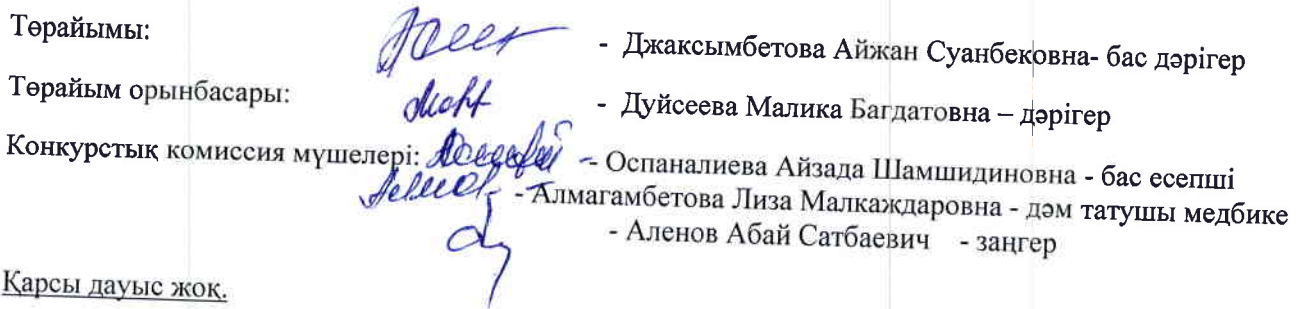 Төрайымы: - Джаксымбетова Айжан Суанбековна- бас дәрігер
Төрайым орынбасары: - Дуйсеева Малика Багдатовна – дәрігер
Конкурстық комиссия мүшелері: - Оспаналиева Айзада Шамшидиновна - бас есепші
- Алмагамбетова Лиза Малкаждаровна - дәм татушы медбике
- Аленов Абай Сатбаевич - заңгер
Қарсы дауыс жоқ.